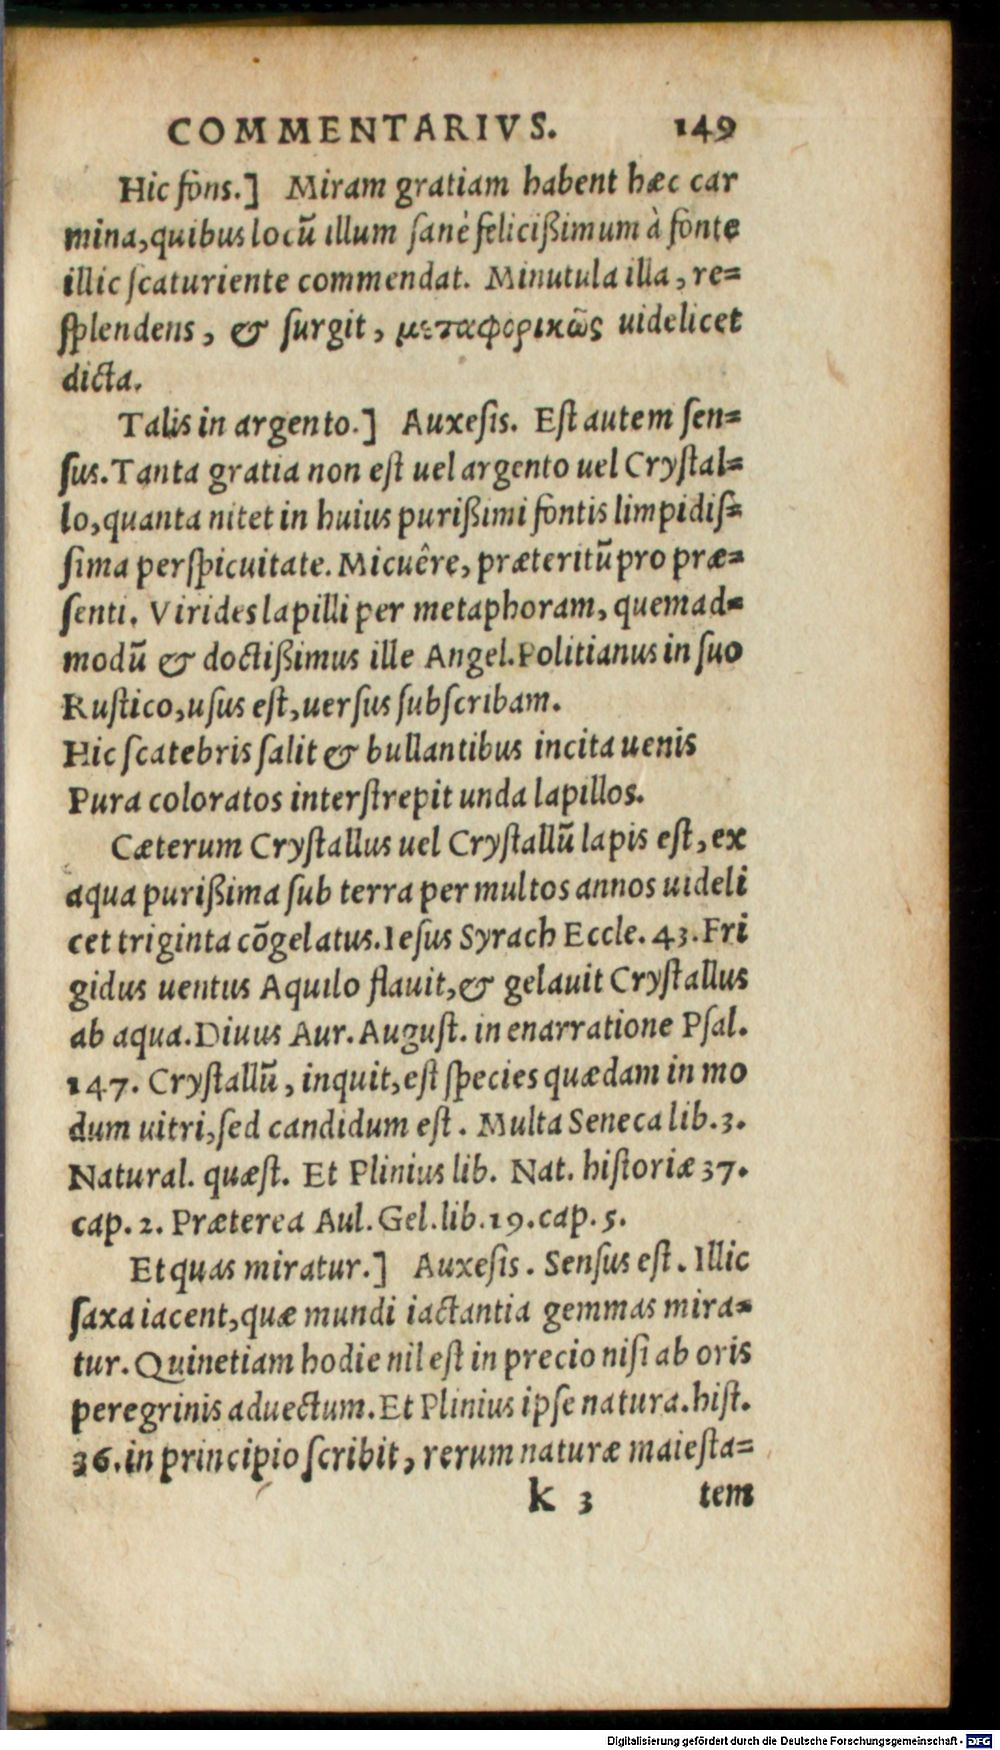 COMMENTARIVS. 149
Hic fons.] Miram gratiam habent hæc car
mina,quibus locū illum ſanè felicißimum à fonte
illic ſcaturiente commendat. Minutula illa, re=
ſplendens, & ſurgit, μεταφορικῶς uidelicet
dicta.
Talis in argento.] Auxeſis. Eſt autem ſen=
ſus. Tanta gratia non eſt uel argento uel Cryſtal=
lo,quanta nitet in huius purißimi fontis limpidiſ=
ſima perſpicuitate. Micuêre, præteritū pro præ=
ſenti. Virides lapilli per metaphoram, quemad=
modū & doctißimus ille Angel.Politianus in ſuo
Ruſtico,uſus eſt,uerſus ſubſcribam.
Hic ſcatebris ſalit & bullantibus incita uenis
Pura coloratos interſtrepit unda lapillos.
Cæterum Cryſtallus uel Cryſtallū lapis eſt, ex
aqua purißima ſub terra per multos annos uideli
cet triginta cōgelatus.Ieſus Syrach Eccle. 43. Fri
gidus uentus Aquilo flauit,& gelauit Cryſtallus
ab aqua.Diuus Aur. Auguſt. in enarratione Pſal.
147. Cryſtallū, inquit,eſt ſpecies quædam in mo
dum uitri,ſed candidum eſt. Multa Seneca lib.3.
Natural. quæſt. Et Plinius lib. Nat. hiſtoriæ 37.
cap. 2. Præterea Aul. Gel. lib.19.cap. 5.
Et quas miratur.] Auxeſis. Senſus eſt. Illic
ſaxa iacent,quæ mundi iactantia gemmas mira=
tur. Quinetiam hodie nil eſt in precio niſi ab oris
peregrinis aduectum. Et Plinius ipſe natura.hiſt.
36.in principio ſcribit, rerum naturæ maieſta=
k 3 tem
Digitalisierung gefördert durch die Deutsche Forschungsgemeinschaft - DFG